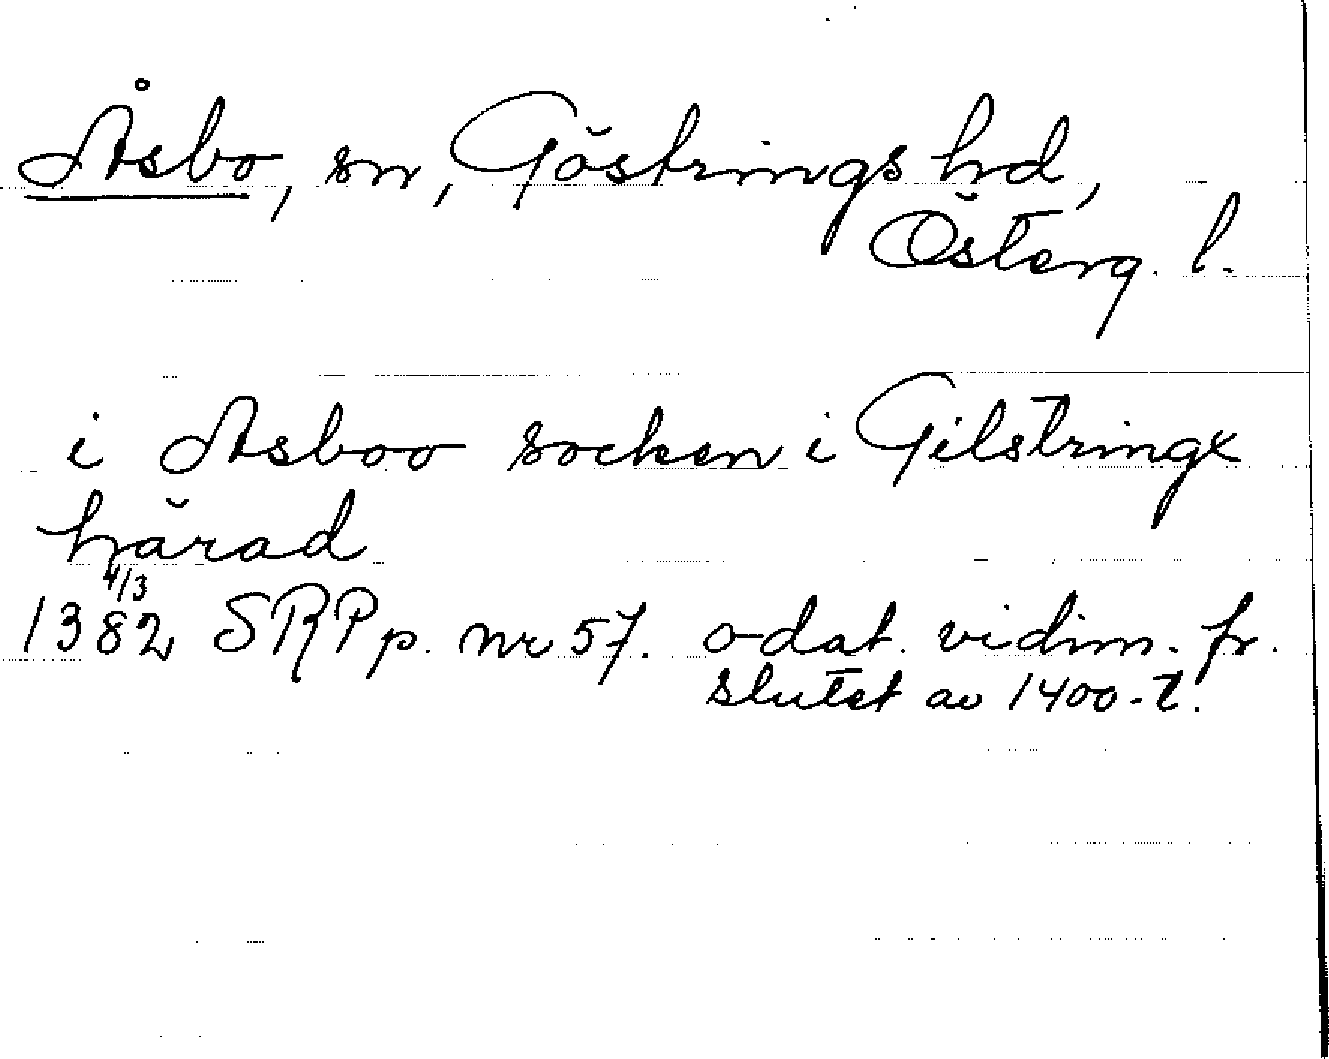 Åsbo, sn, Göstrings hd,
Österg. l.
i Asboo socken i Gilstringx
härad
4/3
1382 SRPp. nr 57. odat. vidim. fr.
slutet av 1400-t.